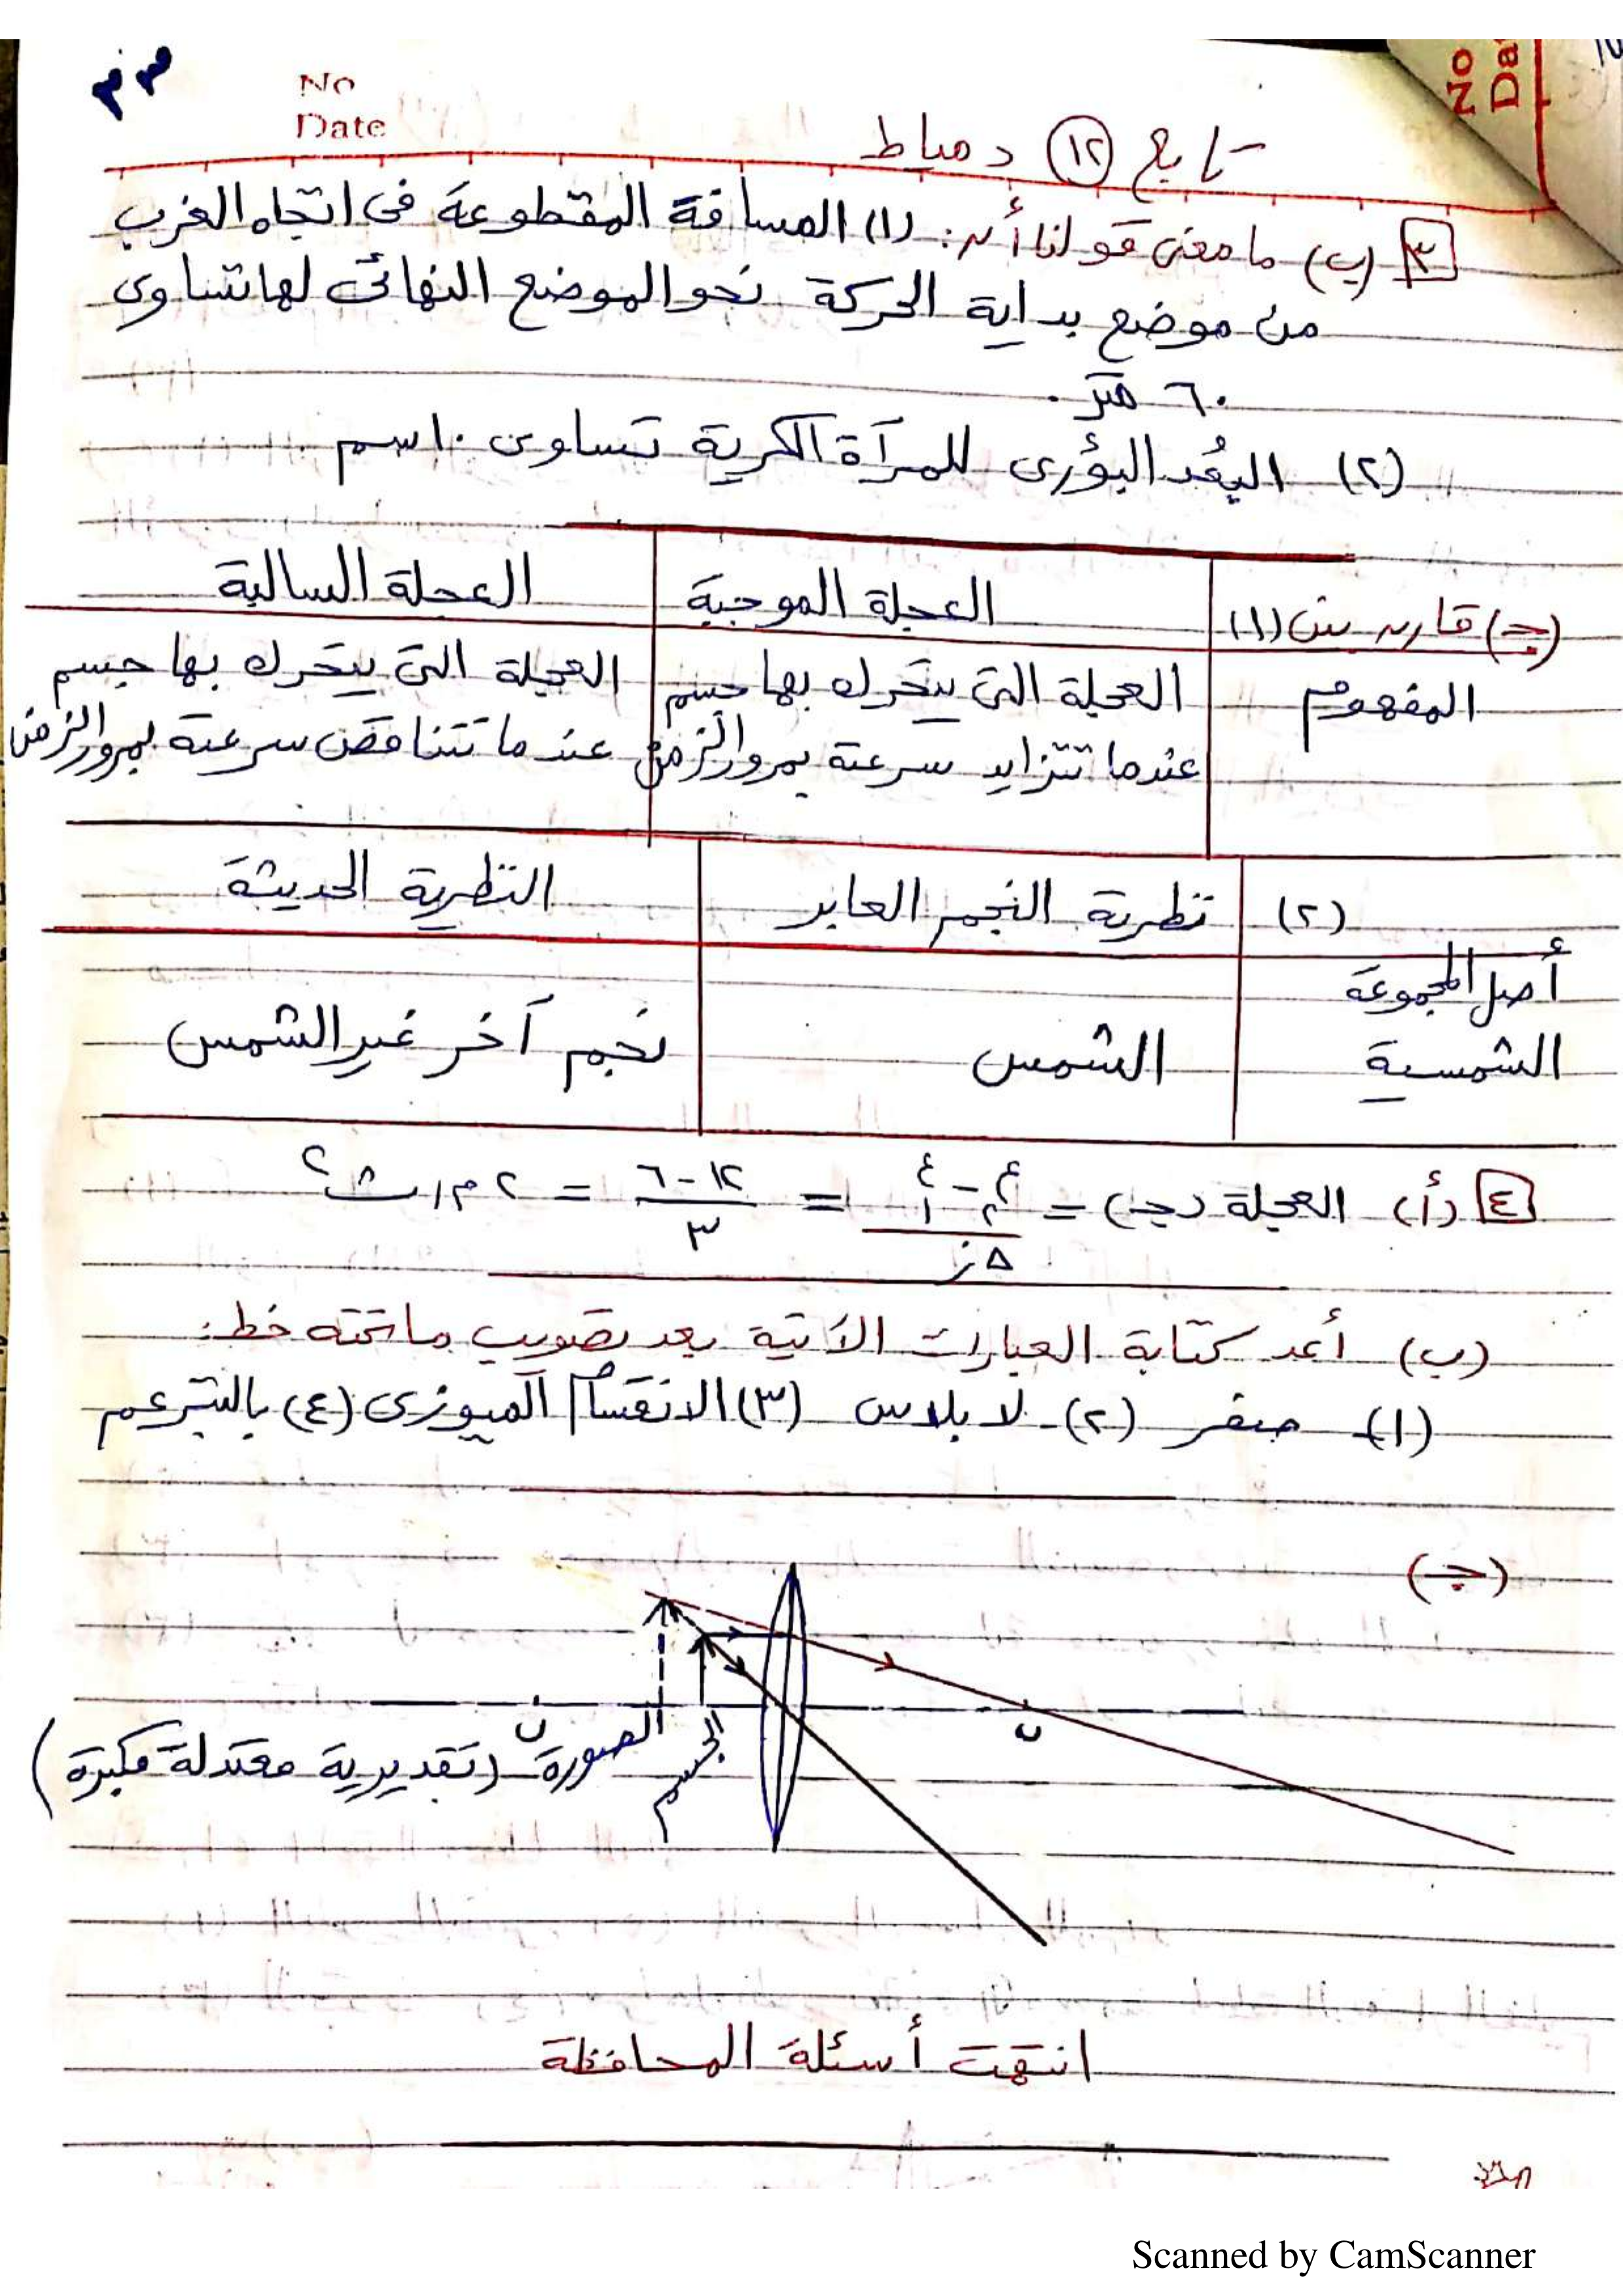 ٣٣
No
Date
No
Da
تابع (١٢) دمياط
٣ (ب) ما معنى قولنا أن: (١) المسافة المقطوعة فى اتجاه الغرب
من موضع بداية الحركة نحو الموضع النهائى لها تساوى
٦٠ متر.
(٢) البُعد البؤرى للمرآة الكرية تساوى ١٠ سم
(جـ) قارن بين (١) العجلة الموجبة العجلة السالبة
المفهوم العجلة التى يتحرك بها جسم العجلة التى يتحرك بها جسم
عندما تتزايد سرعته بمرور الزمن عندما تتناقص سرعته بمرور الزمن
(٢) نظرية النجم العابر النظرية الحديثة
أصل المجموعة
الشمسية الشمس نجم آخر غير الشمس
٤ (أ) العجلة (جـ) = (ع٢ - ع١) / Δز = (١٢ - ٦) / ٣ = ٢ م/ث٢
(ب) أعد كتابة العبارات الآتية بعد تصويب ما تحته خط:
(١) صفر (٢) لابلاس (٣) الانقسام الميوزى (٤) بالتبرعم
(جـ)
ن ن
الجسم
الصورة (تقديرية معتدلة مكبرة)
انتهت أسئلة المحافظة
Scanned by CamScanner